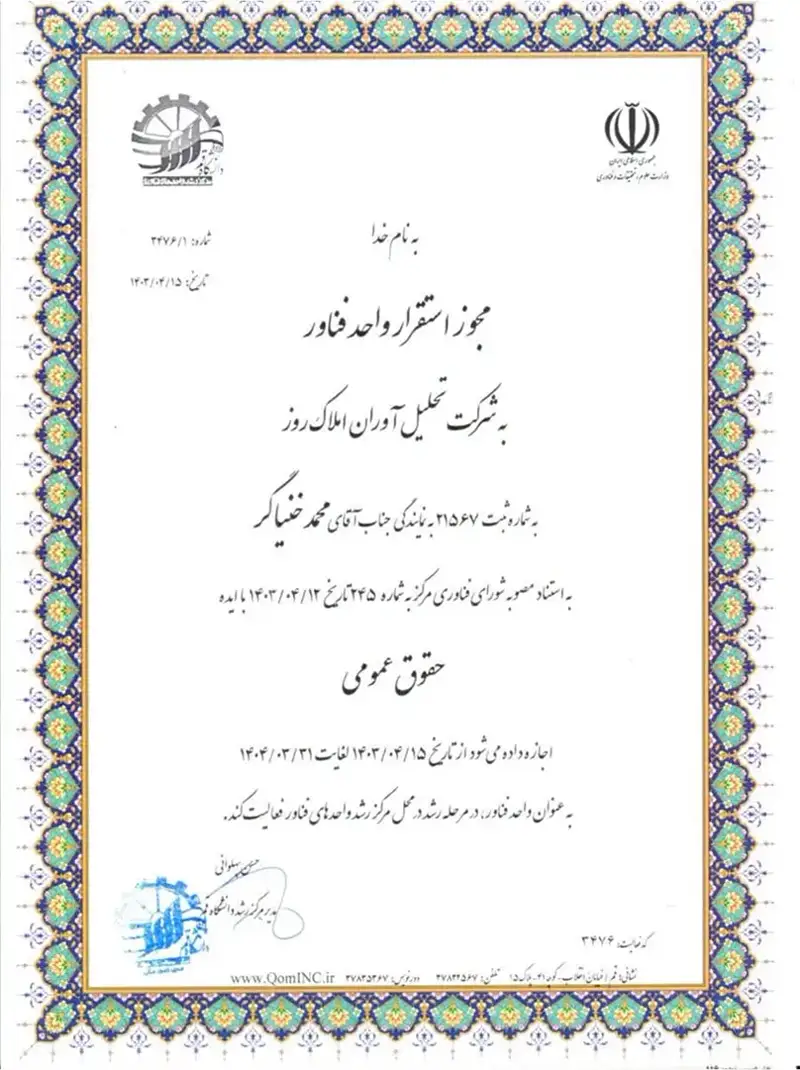 جمهوری اسلامی ایران
وزارت علوم، تحقیقات و فناوری
به نام خدا
شماره: ۳۴۷۶/۱
تاریخ: ۱۴۰۳/۰۴/۱۵
مجوز استقرار واحد فناور
به شرکت تحلیل آوران املاک روز
به شماره ثبت ۲۱۵۶۷ به نمایندگی جناب آقای محمد خنیاگر
به استناد مصوبه شورای فناوری مرکز به شماره ۲۴۵ تاریخ ۱۴۰۳/۰۴/۱۲ با ایده
حقوق عمومی
اجازه داده می‌شود از تاریخ ۱۴۰۳/۰۴/۱۵ لغایت ۱۴۰۴/۰۳/۳۱
به عنوان واحد فناور، در مرحله رشد در محل مرکز رشد واحدهای فناور فعالیت کند.
حسن پهلوانی
مدیر مرکز رشد دانشگاه قم
کد فعالیت: ۳۴۷۶
نشانی: قم / خیابان انقلاب، کوچه ۴۱، پلاک ۱۵ تلفن: ۳۷۸۳۲۵۶۷ دورنویس: ۳۷۸۳۵۳۶۷ www.QomINC.ir